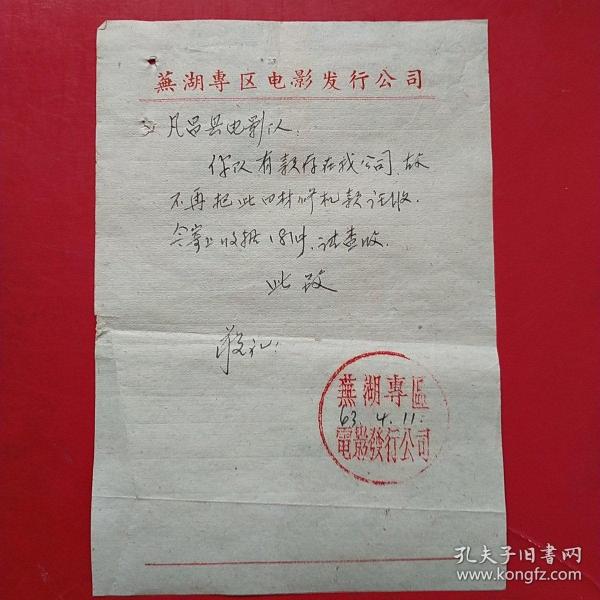 蕪湖專区电影发行公司
凡昌县电影队:
你队有款存在我公司,故
不再把此四材修机款记收.
今寄上收据18件,请查收.
此致
敬礼!
蕪湖專區
63.4.11.
電影發行公司
孔夫子旧书网
www.kongfz.com